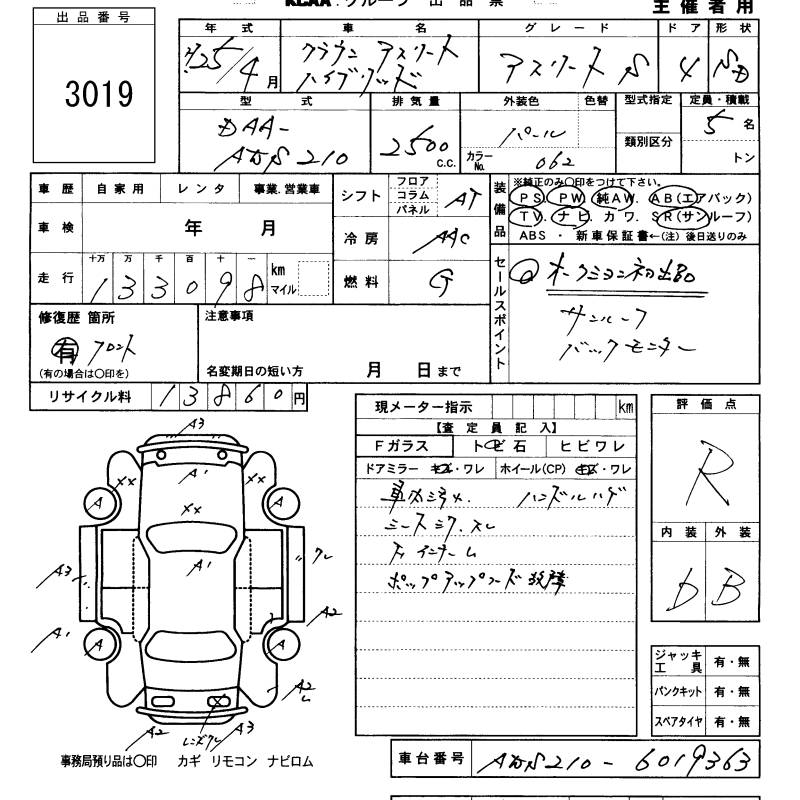 KCAA グループ 出品票
主催者用
出品番号
3019
年式 車名 グレード ドア 形状
H25/4月 クラウン アスリート ハイブリッド アスリート S 4 SD
型式 排気量 外装色 色替 型式指定 定員・積載
DAA-AWS210 2500 C.C. パール 類別区分 5名
カラーNo. 062 トン
車歴 自家用 レンタ 事業.営業車
車検 年 月
走行 十万 万 千 百 十 一
133098 km マイル
シフト フロア コラム パネル AT
冷房 AAC
燃料 G
装備品
※純正のみ〇印をつけて下さい。
PS. PW. 純AW. AB(エアバック)
TV. ナビ. カワ. SR(サンルーフ)
ABS ・ 新車保証書←(注) 後日送りのみ
セールスポイント
オークション初出品
サンルーフ
バックモニター
修復歴 箇所
有 フロント
(有の場合は〇印を)
注意事項
名変期日の短い方 月 日まで
リサイクル料 13860円
現メーター指示 km
【査定員記入】
Fガラス トビ石 ヒビワレ
ドアミラー キズ・ワレ ホイール(CP) キズ・ワレ
車内汚れ. ハンドルハゲ
シースミタ. スレ
ポップアップフード故障
評価点
R
内装 外装
D B
A3
A1
XX XX
XX
A A
A1
クレ
A3
A2
A1
A A
A2
A2 レンズクレ A3
ジャッキ 工具 有・無
パンクキット 有・無
スペアタイヤ 有・無
事務局預り品は〇印 カギ リモコン ナビロム
車台番号 AWS210-6019363